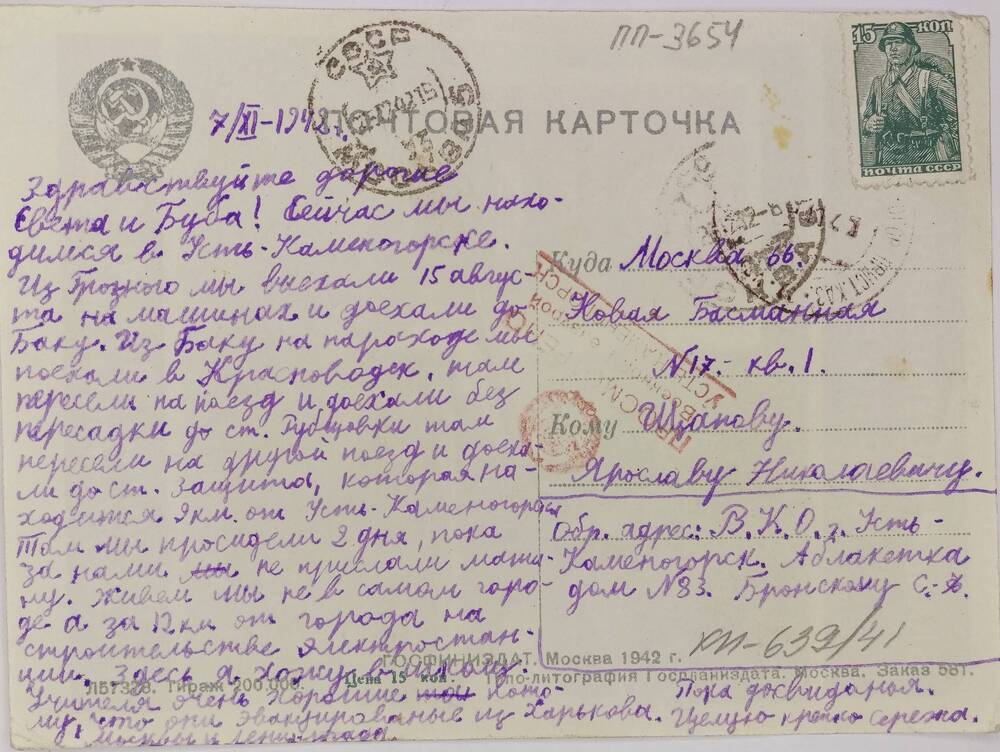 ПП-3654
15 КОП
ПОЧТА СССР
СССР
МОСКВА
ПОЧТОВАЯ КАРТОЧКА
7/XI-1942 г.
Здравствуйте дорогие
Света и Буба! Сейчас мы нахо-
димся в Усть-Каменогорске.
Из Грозного мы выехали 15 авгус-
та на машинах и доехали до
Баку. Из Баку на пароходе мы
поехали в Красноводск, там
пересели на поезд и доехали без
пересадки до ст. Рубцовки там
пересели на другой поезд и доеха-
ли до ст. Защита, которая на-
ходится 9 км. от Усть-Каменогорска
Там мы просидели 2 дня, пока
за нами мы не прислали маши-
ну. Живем мы не в самом горо-
де а за 12 км от города на
строительстве электростан-
ции. Здесь я хожу в школу.
Учителя очень хорошие пото-
му, что они эвакуированные из Харькова.
Москвы и Ленинграда.
Пока досвиданья.
Целую крепко Сережа.
Куда Москва 66.
Новая Басманная
N 17 - кв. 1.
Кому Щапову.
Ярославу Николаевичу.
Обр. адрес: В.К.О. г. Усть-
Каменогорск. Аблакетка
дом N 83. Бронскому С.
КП-639/41
ГОСФИНИЗДАТ. Москва 1942 г.
Л57328. Тираж 200.000. Цена 15 коп. Типо-литография Госпланиздата. Москва. Заказ 581.